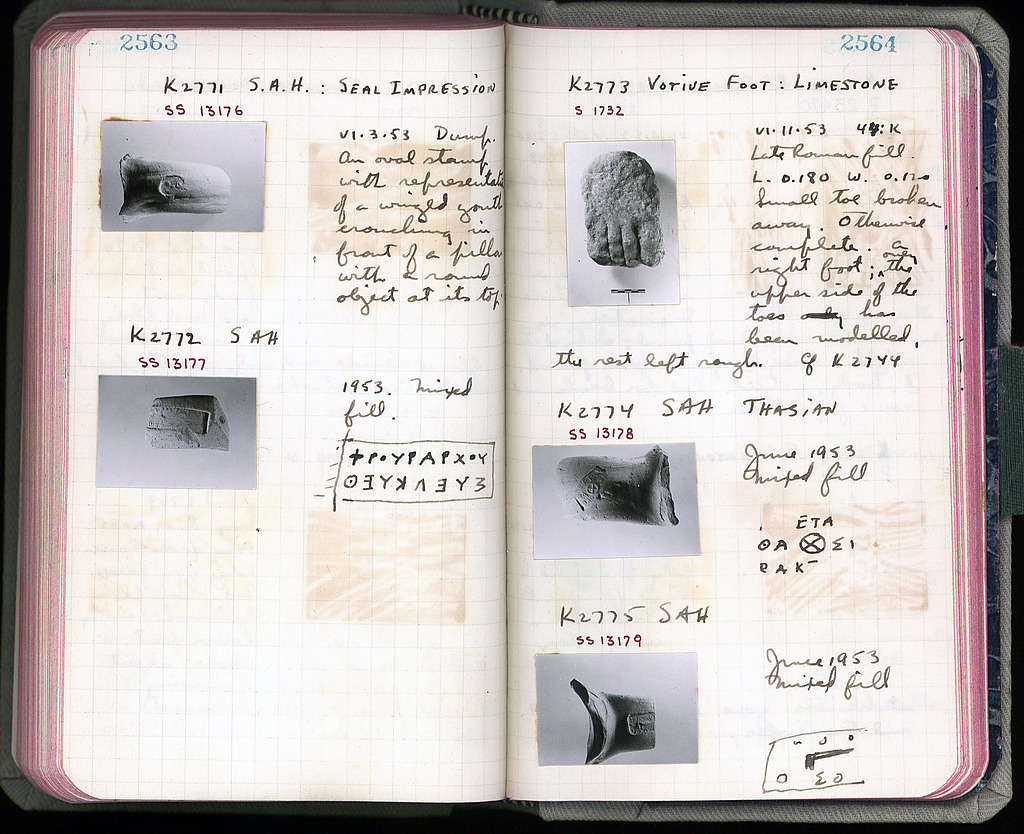 2563
K2771 S.A.H. : SEAL IMPRESSION
SS 13176
VI.3.53 Dump.
An oval stamp
with representat
of a winged youth
crouching in
front of a pilla
with a round
object at its top.
K2772 SAH
SS 13177
1953. Mixed
fill.
ΦΡΟΥΡΑΡΧΟΥ
2564
K2773 VOTIVE FOOT : LIMESTONE
S 1732
VI.11.53
Late Roman fill.
L. 0.180 W. 0.120
Small toe broken
away. Otherwise
complete. A
right foot; only the
upper side of the
toes has
been modelled,
the rest left rough. Cf K2744
K2774 SAH THASIAN
SS 13178
June 1953
mixed fill
ΕΤΑ
ΘΑ ΣΙ
ΡΑΚ
K2775 SAH
SS 13179
June 1953
mixed fill
Ο ΣΟ